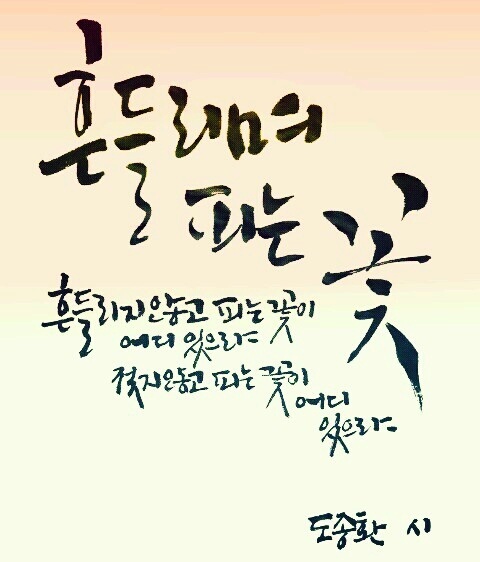 흔들리며
피는 꽃
흔들리지않고 피는 꽃이
어디 있으랴
젖지않고 피는 꽃이
어디
있으랴
도종환 시